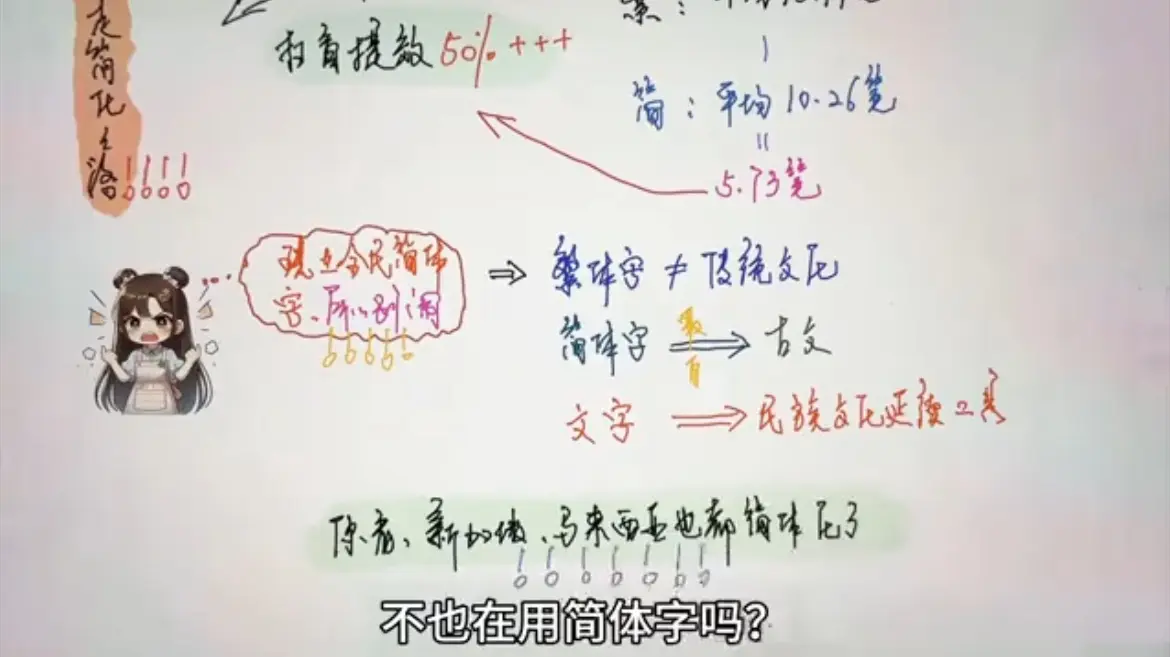 走简化之路!!!!
教育提效50%+++
简：平均10.26笔
=
5.73笔
现在全民简体
字、所以别闹!!!!!
⇒
繁体字≠传统文化
简体字 最自 ⇒ 古文
文字 ⇒ 民族文化延续工具
你看、新加坡、马来西亚也都简体化了
!!!!!!!
不也在用简体字吗？